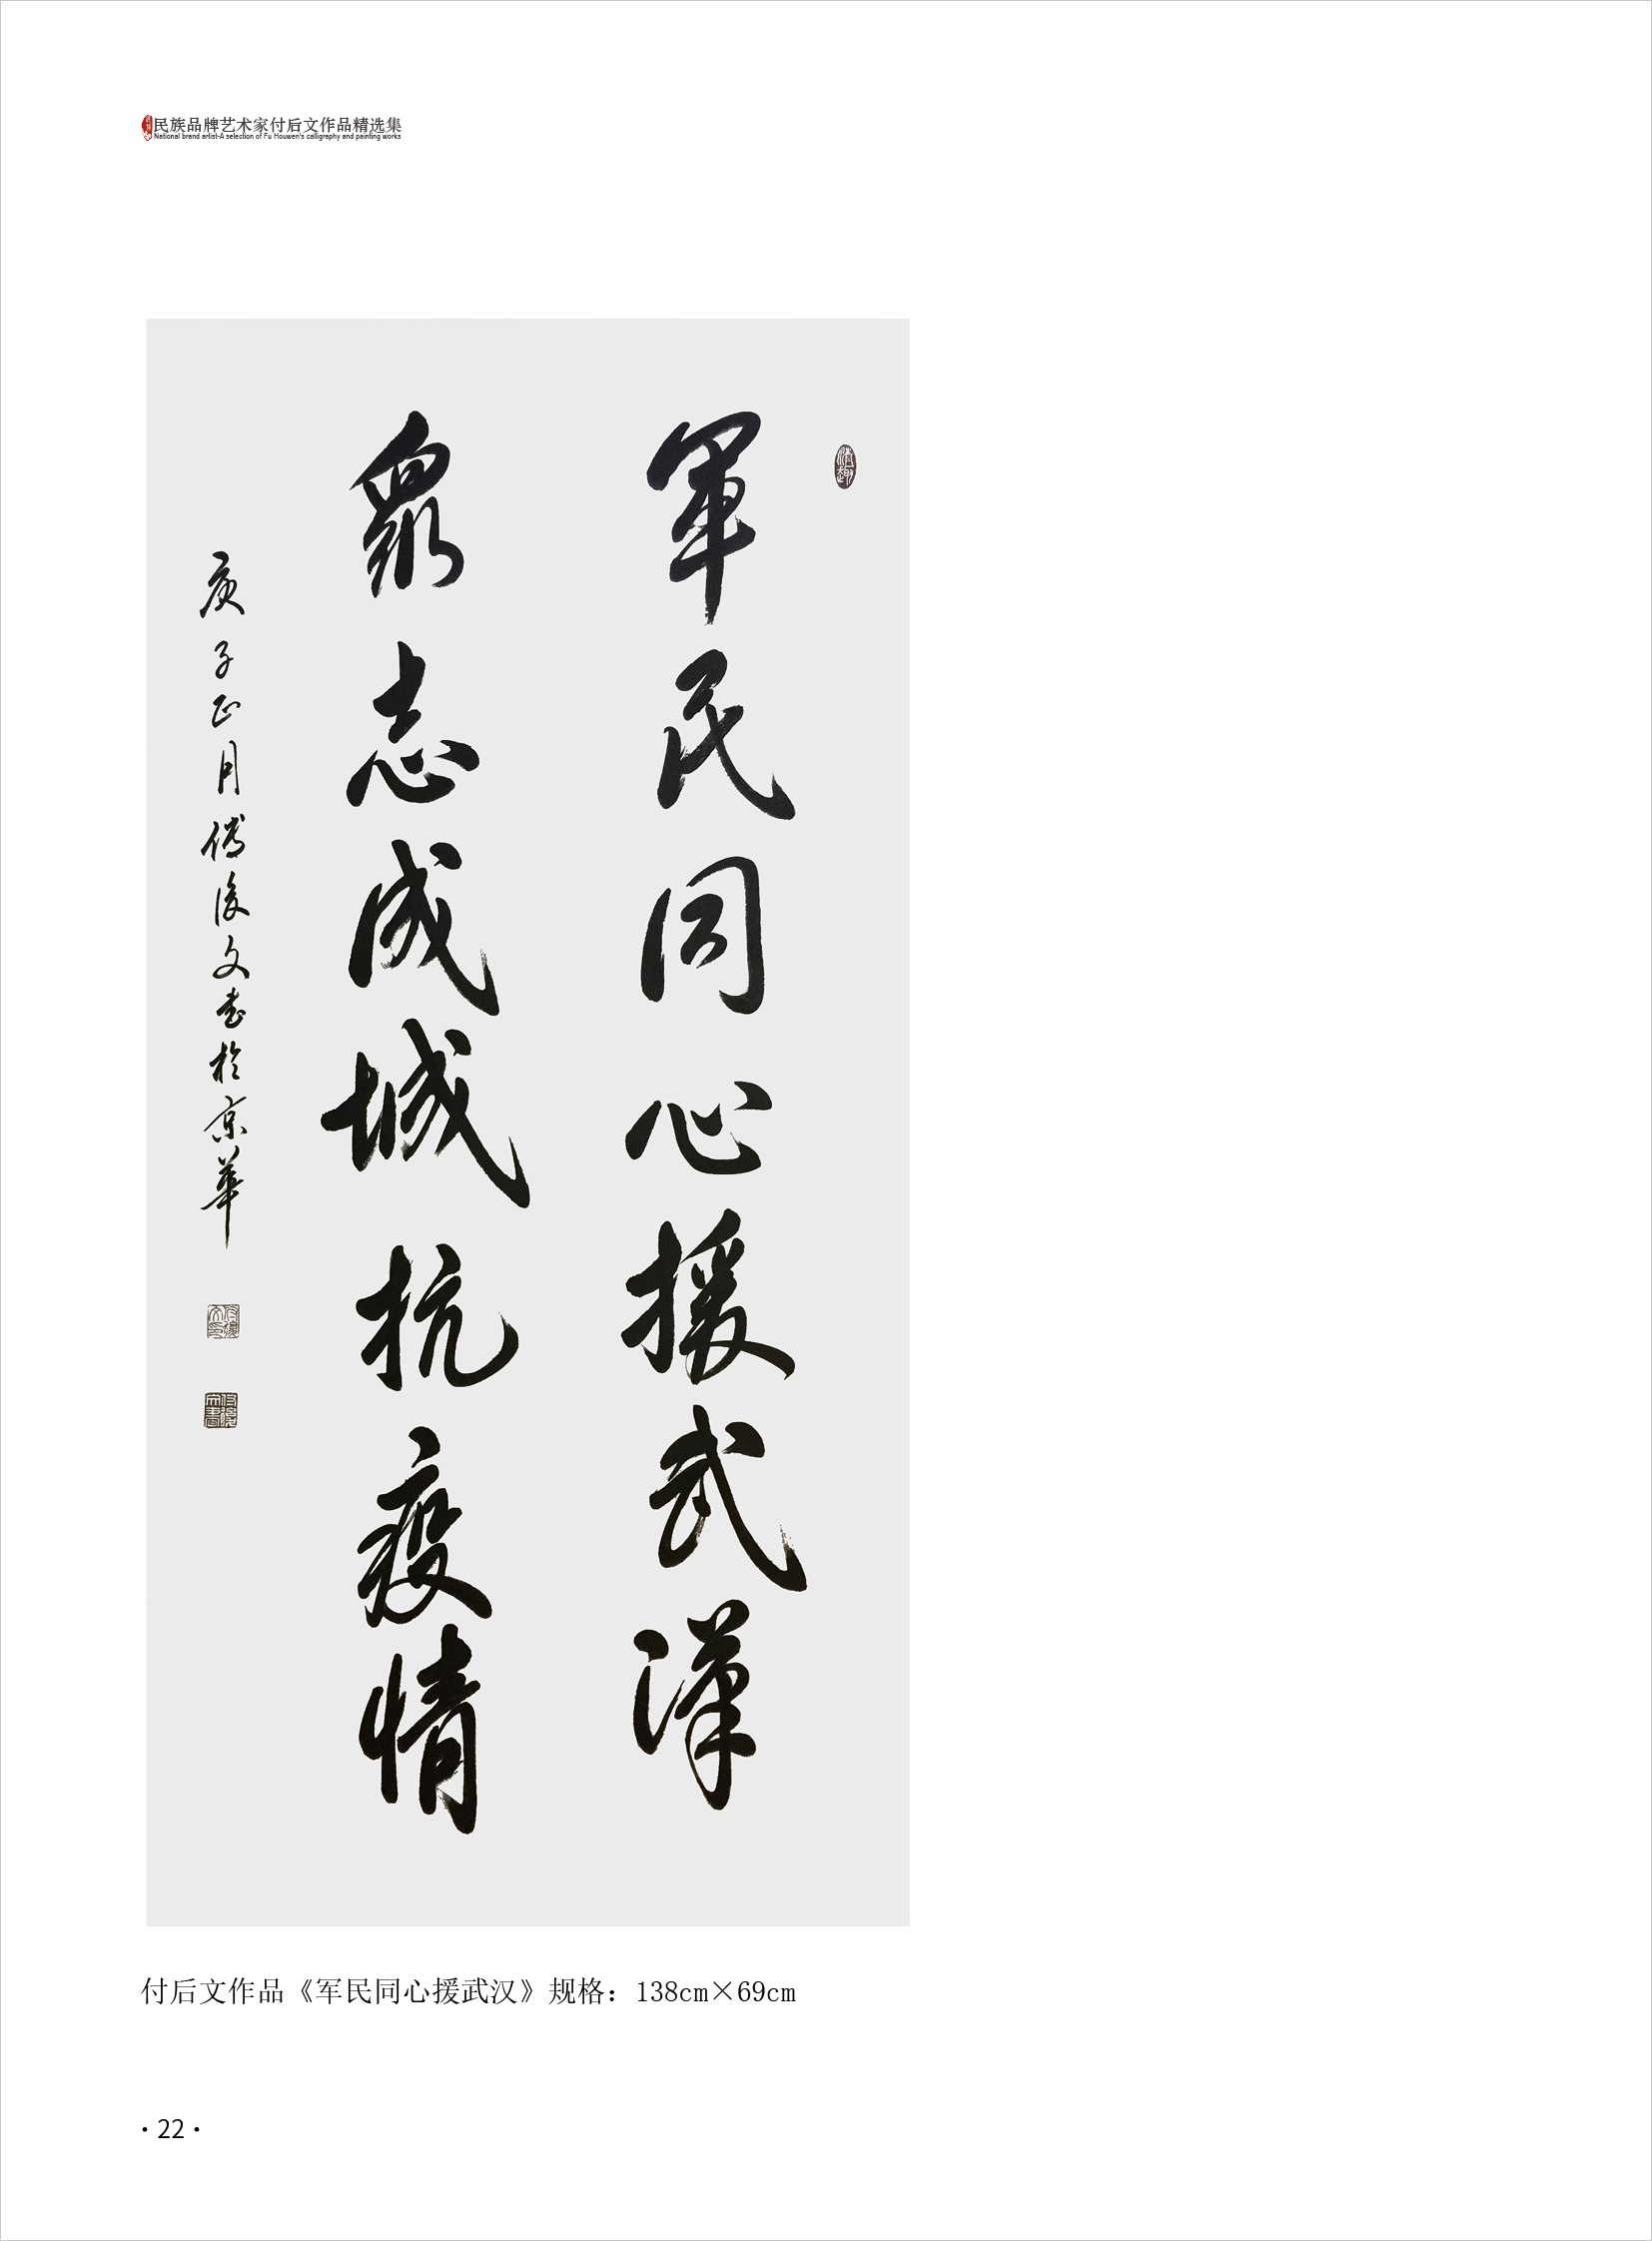 民族品牌艺术家付后文作品精选集
National brand artist-A selection of Fu Houwen's calligraphy and painting works
軍民同心援武漢
眾志成城抗疫情
庚子正月傅後文书於京華
付后文作品《军民同心援武汉》规格：138cm×69cm
· 22 ·